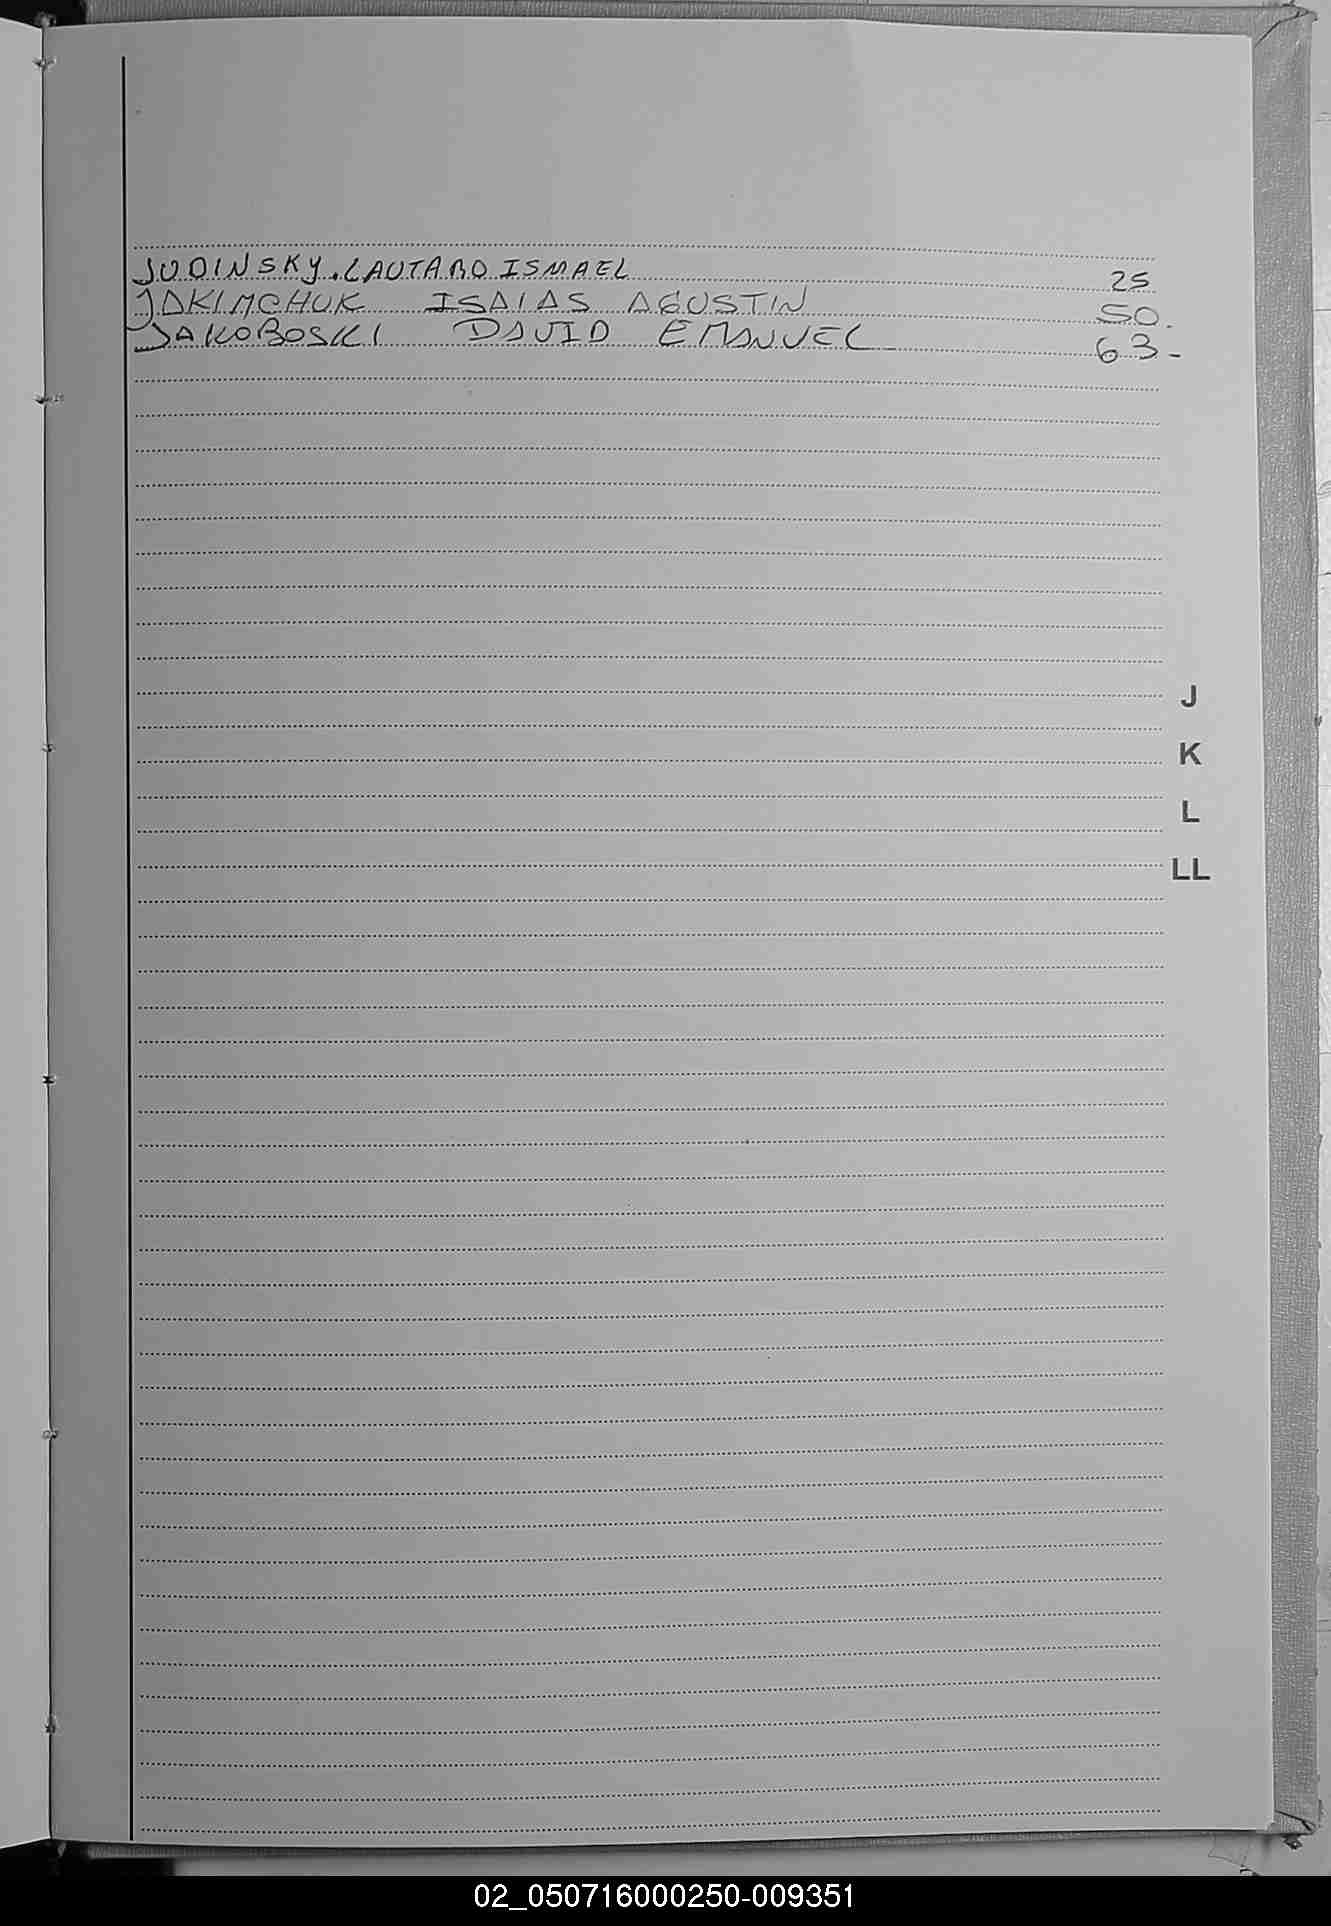 JUDINSKY, LAUTARO ISMAEL 25
JAKIMCHUK ISAIAS AGUSTIN 50.
JAKOBOSKI DAVID EMANUEL 63-
J
K
L
LL
02_050716000250-009351